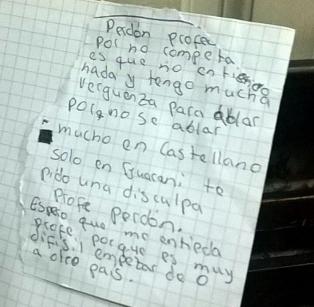 Perdón profe
por no competa
es que no entiendo
nada y tengo mucha
verguenza para ablar
porq no se ablar
mucho en Castellano
solo en Guarani te
pido una disculpa
Profe perdón.
Espero que me entieda
profe, porque es muy
difisil empezar de 0
a otro pais.